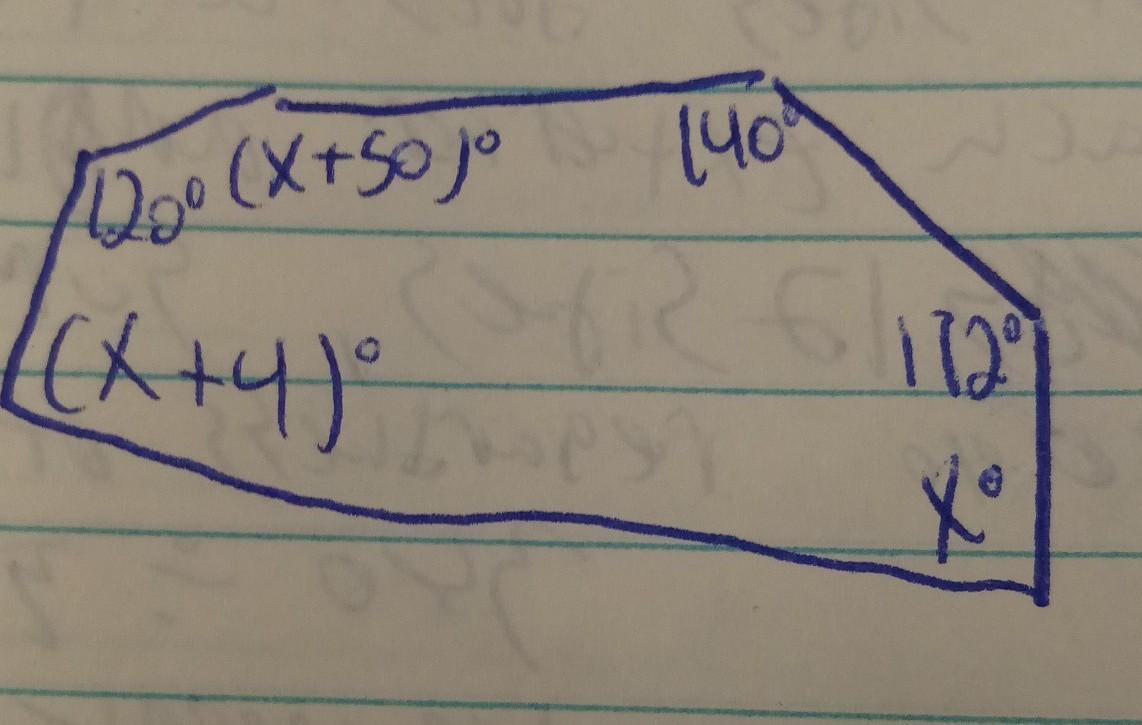 120° (x+50)° 140°
(x+4)°
x°